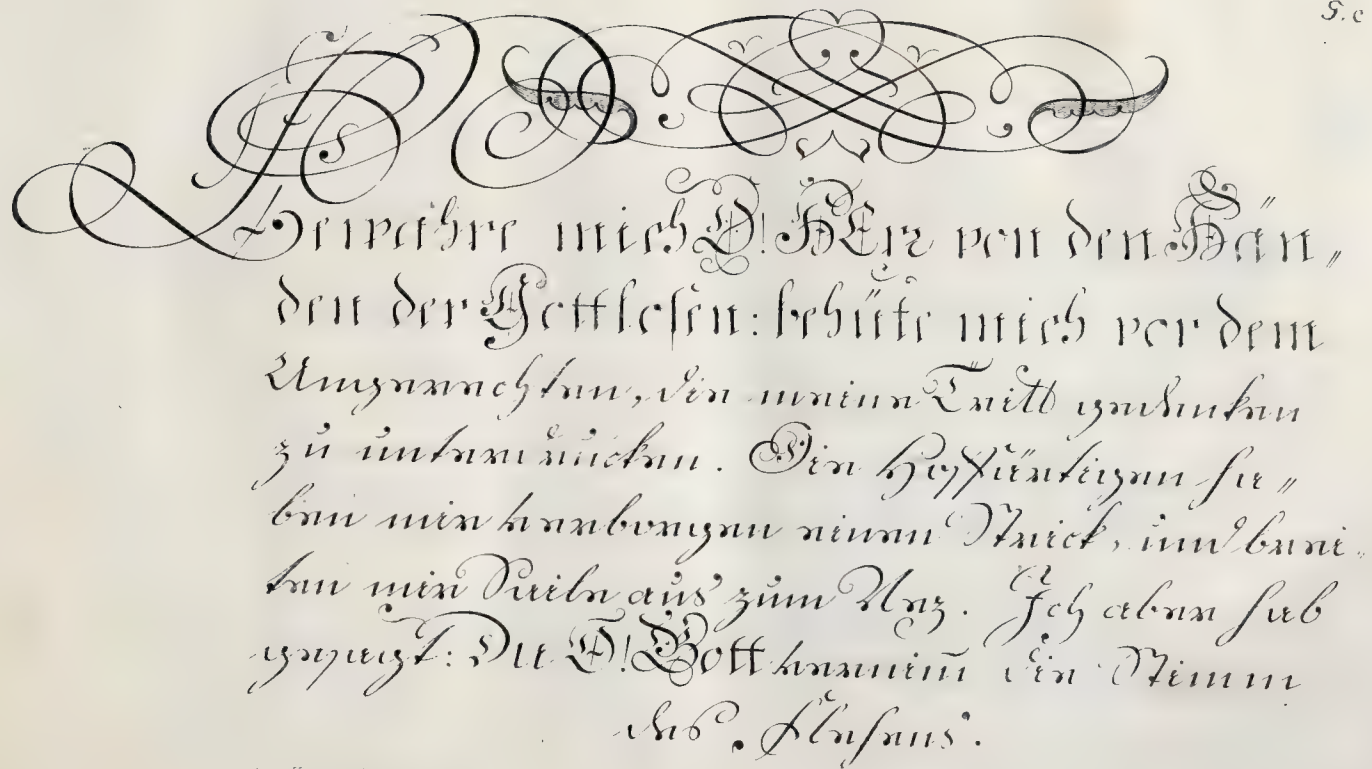 S. c
Bewahre mich O! HErr von den Hän„
den der Gottlosen: behüte mich vor dem
Ungerechten, die meine Tritt gedenken
zu unterdrucken. Die Hoffärtigen ha„
ben mir verborgen einen Strick, und berei„
ten mir Seile aus zum Nez. Ich aber hab
gesagt: Du O! Gott vernim̄ die Stimm
des Flehens.